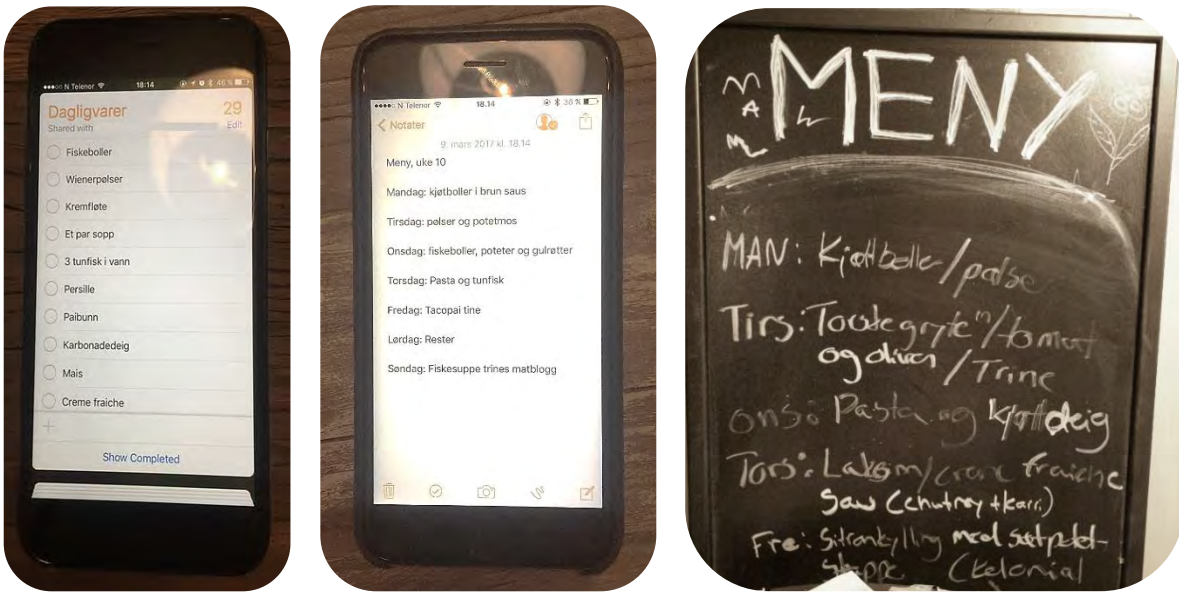 N Telenor 18:14 46 %
Dagligvarer 29
Shared with Edit
Fiskeboller
Wienerpølser
Kremfløte
Et par sopp
3 tunfisk i vann
Persille
Paibunn
Karbonadedeig
Mais
Creme fraiche
+
Show Completed
N Telenor 18.14 36 %
< Notater
9. mars 2017 kl. 18.14
Meny, uke 10
Mandag: kjøtboller i brun saus
Tirsdag: pølser og potetmos
Onsdag: fiskeboller, poteter og gulrøtter
Torsdag: Pasta og tunfisk
Fredag: Tacopai tine
Lørdag: Rester
Søndag: Fiskesuppe trines matblogg
MENY
MAN: Kjøttboller/pølse
Tirs: Torskegryte m/tomat
og oliven/Trine
ons: Pasta og kjøttdeig
Tors: Laks m/creme fraiche
Saus (chutney + karri)
Fre: Sitronkylling med søtpotet-
stappe (kolonial